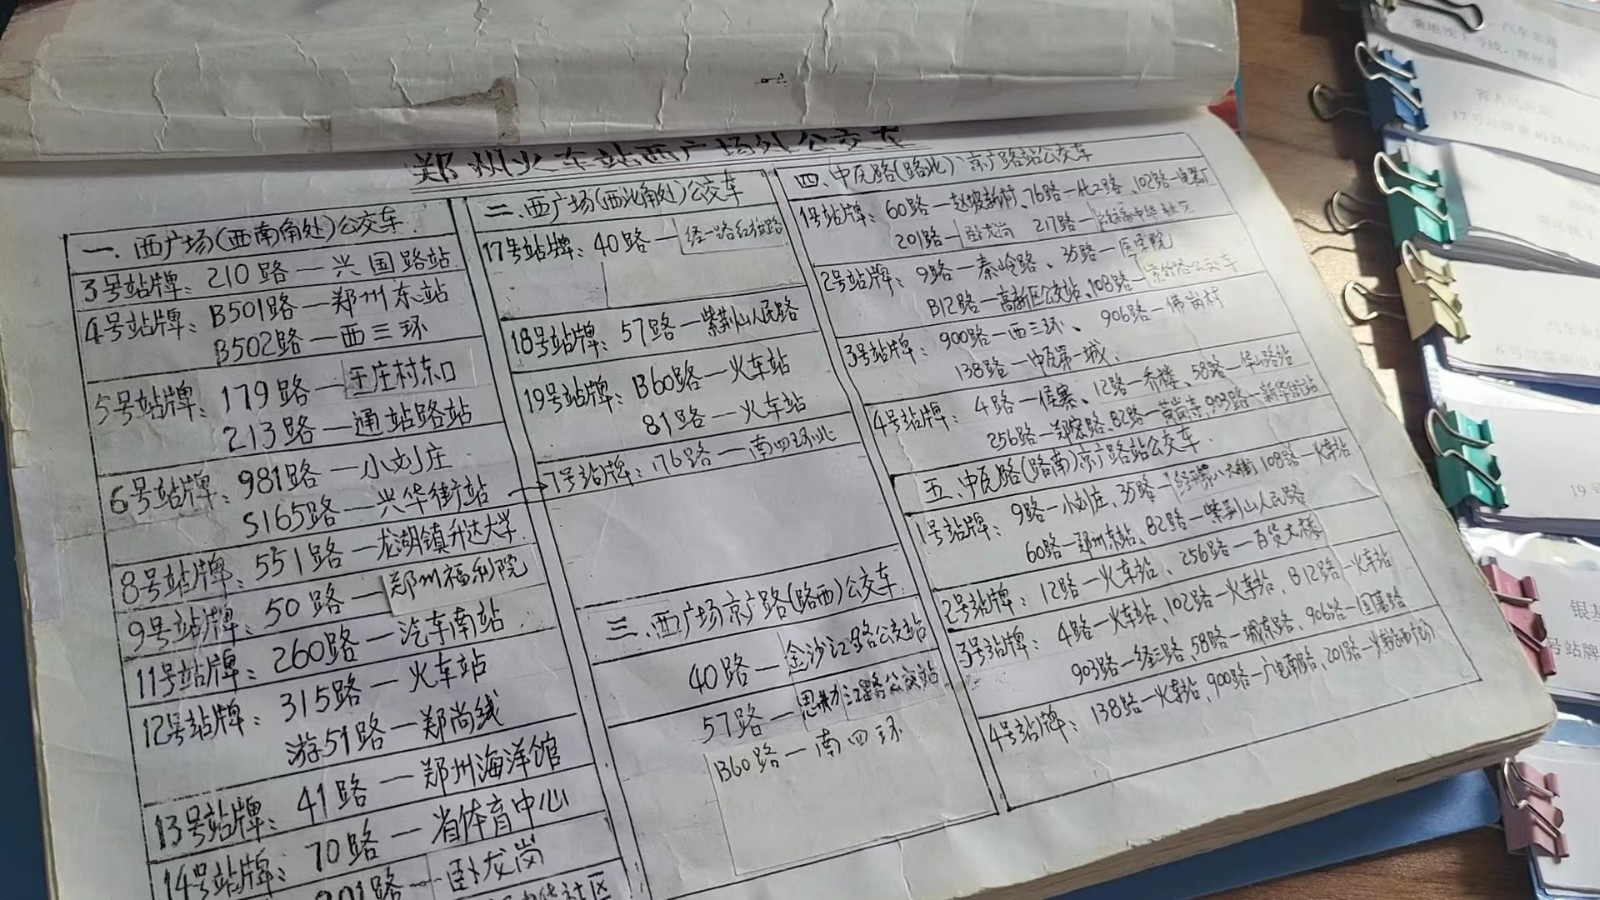 郑州火车站西广场外公交车
一、西广场(西南角处)公交车
3号站牌: 210路—兴国路站
4号站牌: B501路—郑州东站
B502路—西三环
5号站牌: 179路—王庄村东口
213路—通站路站
6号站牌: 981路—小刘庄
S165路—兴华街站
8号站牌: 551路—龙湖镇升达大学
9号站牌: 50路—郑州福利院
11号站牌: 260路—汽车南站
12号站牌: 315路—火车站
游51路—郑尚线
13号站牌: 41路—郑州海洋馆
14号站牌: 70路—省体育中心
201路—卧龙岗
二、西广场(西北角处)公交车
17号站牌: 40路—经一路红旗路
18号站牌: 57路—紫荆山人民路
19号站牌: B60路—火车站
81路—火车站
7号站牌: 176路—南四环北
三、西广场京广路(路西)公交车
40路—金沙江路公交站
57路—江路公交站
B60路—南四环
四、中原路(路北)京广路站公交车
1号站牌: 60路—赵坡新村、76路—化工路、102路—电器厂
201路—卧龙岗 217路—社区
2号站牌: 9路—秦岭路、35路—医学院
B12路—高新区公交站、108路—公交车
3号站牌: 900路—西三环、906路—佛岗村
138路—中原第一城.
4号站牌: 4路—侯寨、12路—乔楼、58路—华山路站
256路—郑密路、82路—黄岗寺、903路—新华路站
五、中原路(路南)京广路站公交车
1号站牌: 9路—小刘庄、35路—经开第八大街 108路—火车站
60路—郑州东站、82路—紫荆山人民路
2号站牌: 12路—火车站、256路—百货大楼
3号站牌: 4路—火车站、102路—火车站、B12路—火车站
903路—经三路、58路—城东路、906路—国基路
4号站牌: 138路—火车站、900路—广电南路、201路—火车站西广场